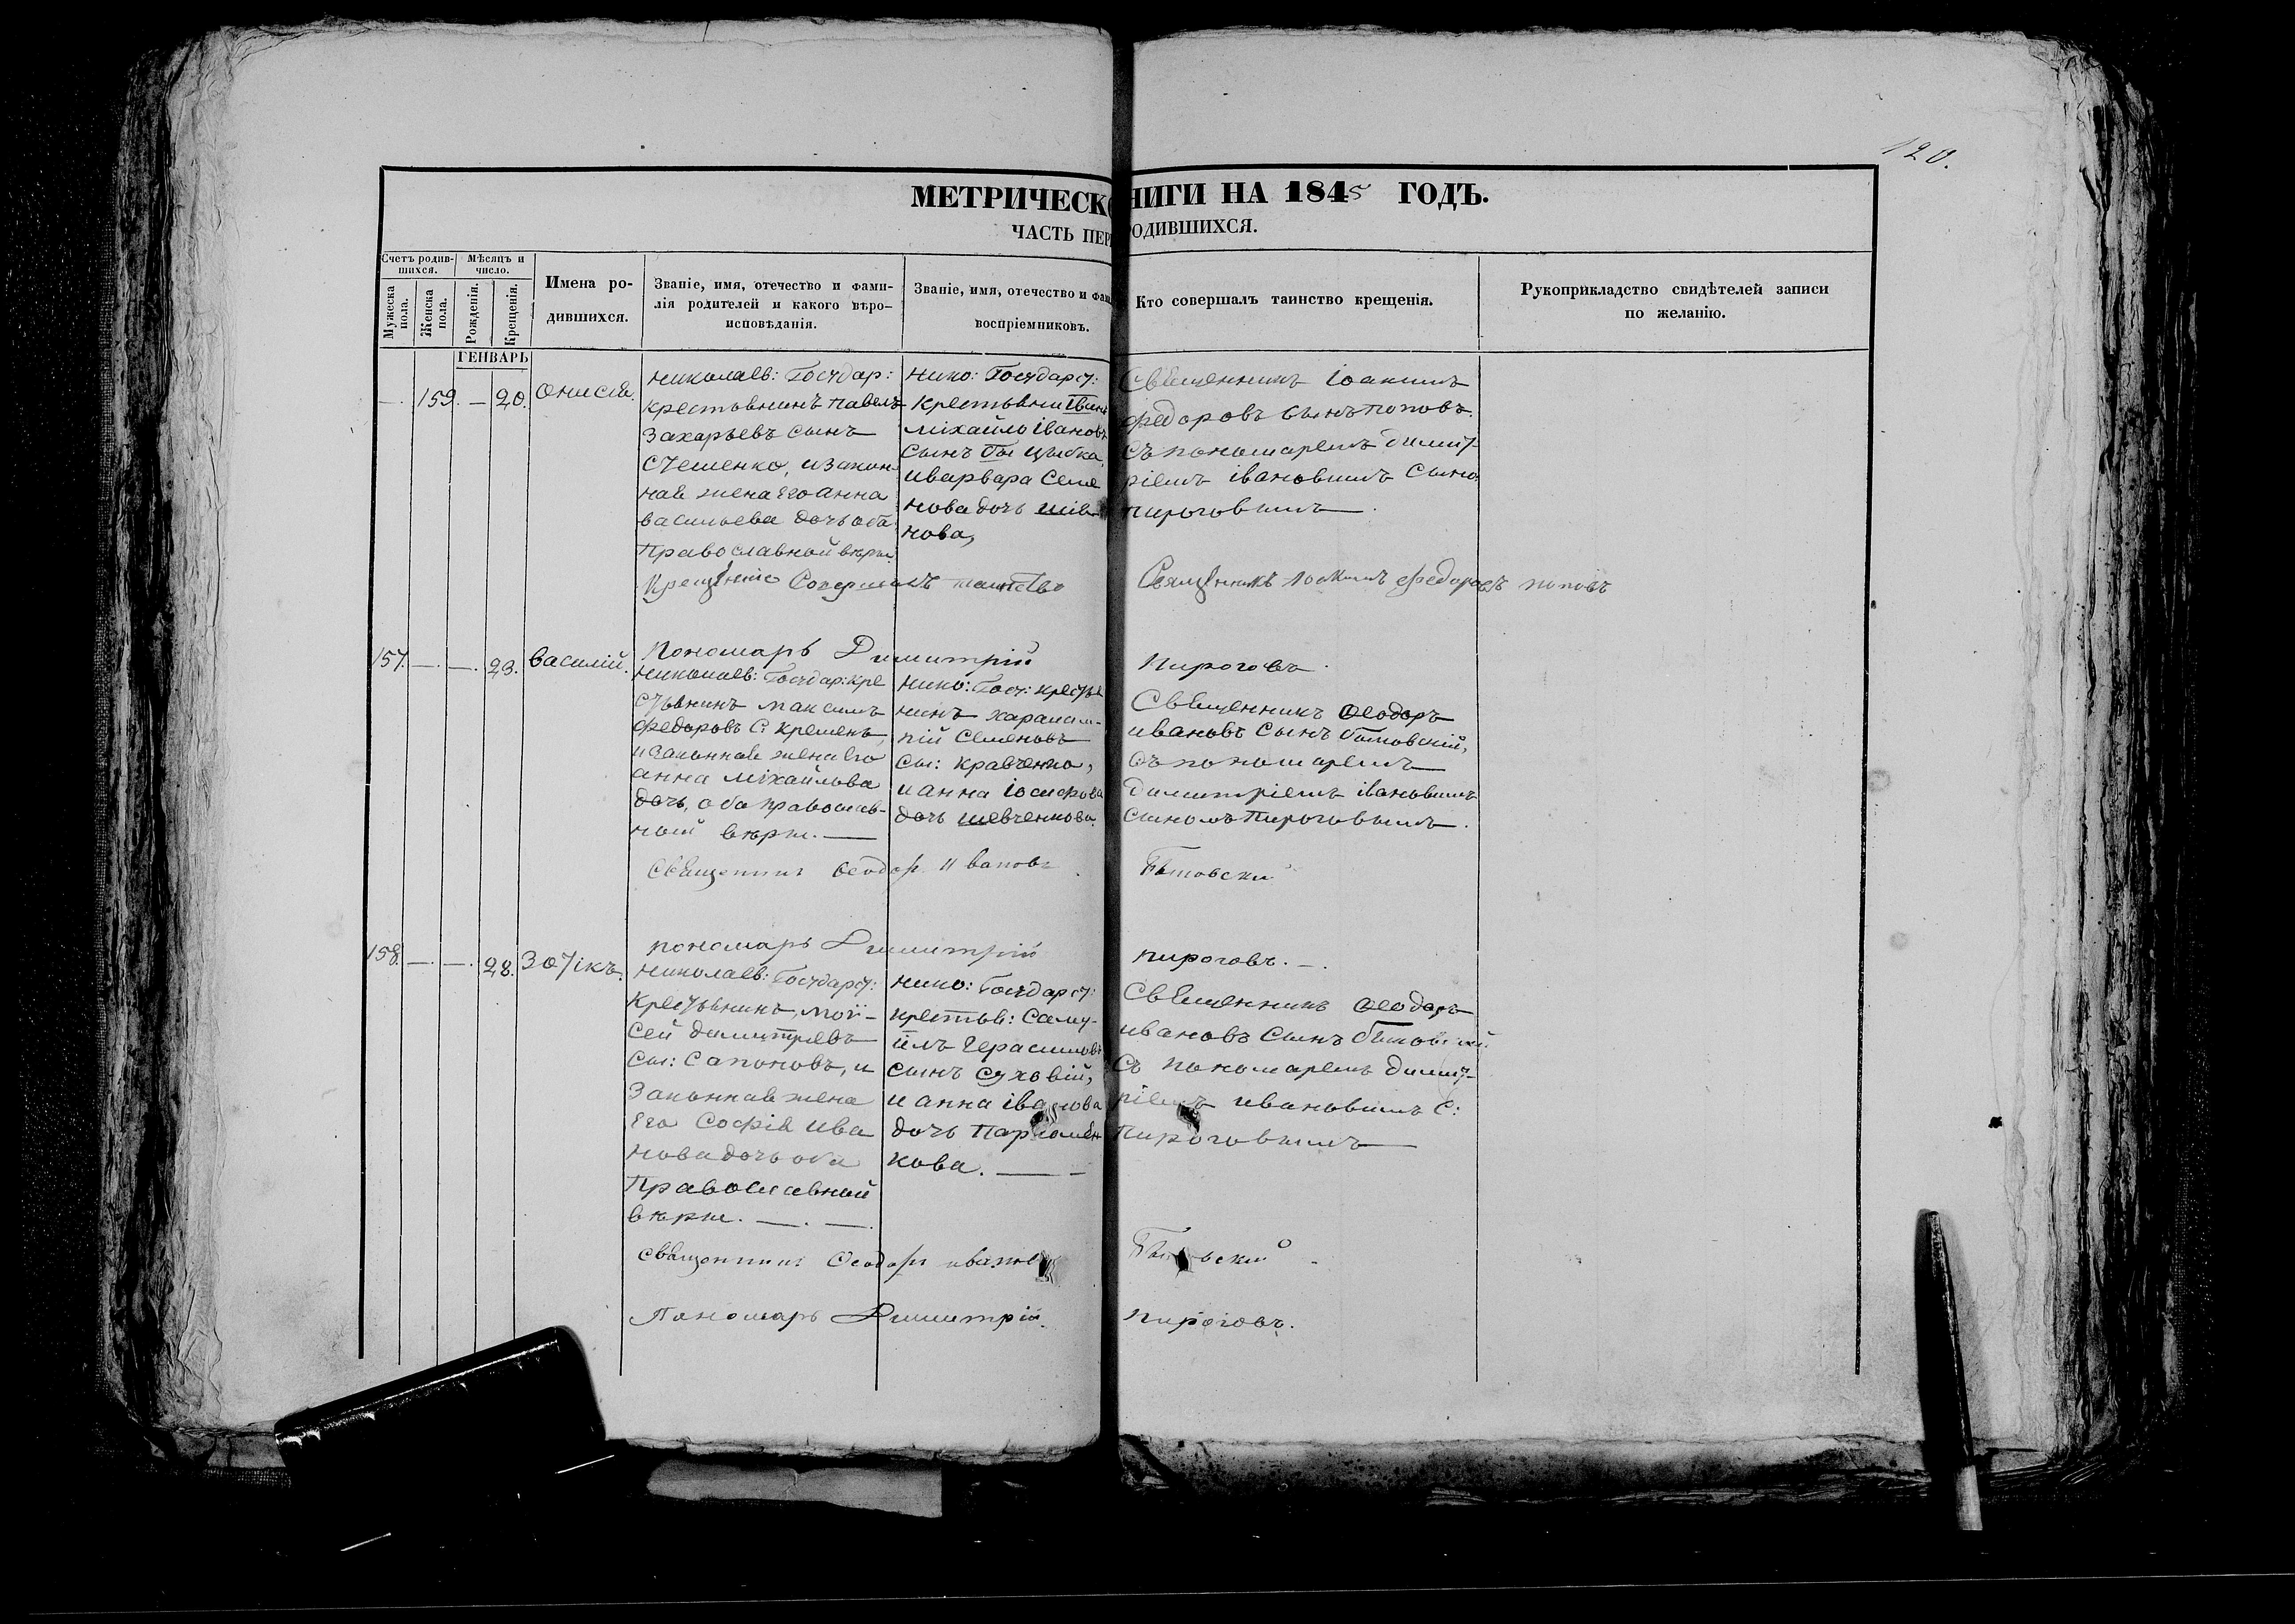 120.
МЕТРИЧЕСКО НИГИ НА 1845 ГОДЪ.
ЧАСТЬ ПЕР РОДИВШИХСЯ.
Счетъ родив-
шихся.
Мѣсяцъ и
число.
Мужеска
пола.
Женска
пола.
Рожденія.
Крещенія.
Имена ро-
дившихся.
Званіе, имя, отечество и фами-
лія родителей и какого вѣро-
исповѣданія.
Званіе, имя, отечество и фам
воспріемниковъ.
Кто совершалъ таинство крещенія.
Рукоприкладство свидѣтелей записи
по желанію.
ГЕНВАРЬ
—. 159. — 20. Онисія.
Николаев: Государ:
крестьянинъ Павелъ
Захарьевъ сынъ
и закон
ная жена его Анна
Васильева дочь оба
Православной вѣры
Нико: Государст:
Міхайло Івановъ
сынъ Цыбка,
и Варвара Семе
нова дочь
нова,
Священникъ Іоакимъ
Федоровъ сынъ Поповъ
съ пономаремъ Димит-
ріемъ Івановымъ сыно
Пироговымъ.
Крещеніе Совершилъ таинство Священникъ Іоакимъ Федоровъ Поповъ
Пономарь Димитрій Пироговъ.
157. —. —. 23. Василій.
Николаев: Государ: кре
стьянинъ Максимъ
Федоровъ С: Кремень,
и законная жена его
Анна Міхайлова
дочь, оба православ-
ной вѣры. —
Нико: Госу: крестья
нинъ Харалам-
пій Семеновъ
сы: Кравченко,
и Анна Іосифова
дочь Шевченкова.
Священникъ Ѳеодоръ
Ивановъ сынъ Бытовскій,
съ пономаремъ
Димитріемъ Івановымъ
сыномъ Пироговымъ.
Священникъ Ѳеодоръ Ивановъ
Пономарь Димитрій Пироговъ. —.
158. —. —. 28. Зотікъ.
Николаев: Государст:
крестьянинъ Мой-
сей Димитріевъ
сы: Сапоновъ, и
законная жена
его Софія Ива
нова дочь оба
Православной
вѣры. —. —.
Нико: Государст:
крестья: Саму-
илъ Герасимовъ
сынъ Суховій,
и Анна Іванова
дочь Пархомен
кова. — —
Священникъ Ѳеодоръ
Ивановъ сынъ
Съ пономаремъ Димит-
ріемъ Ивановымъ С:
Пироговымъ —
Священникъ Ѳеодоръ Иванов
Пономарь Димитрій Пироговъ.